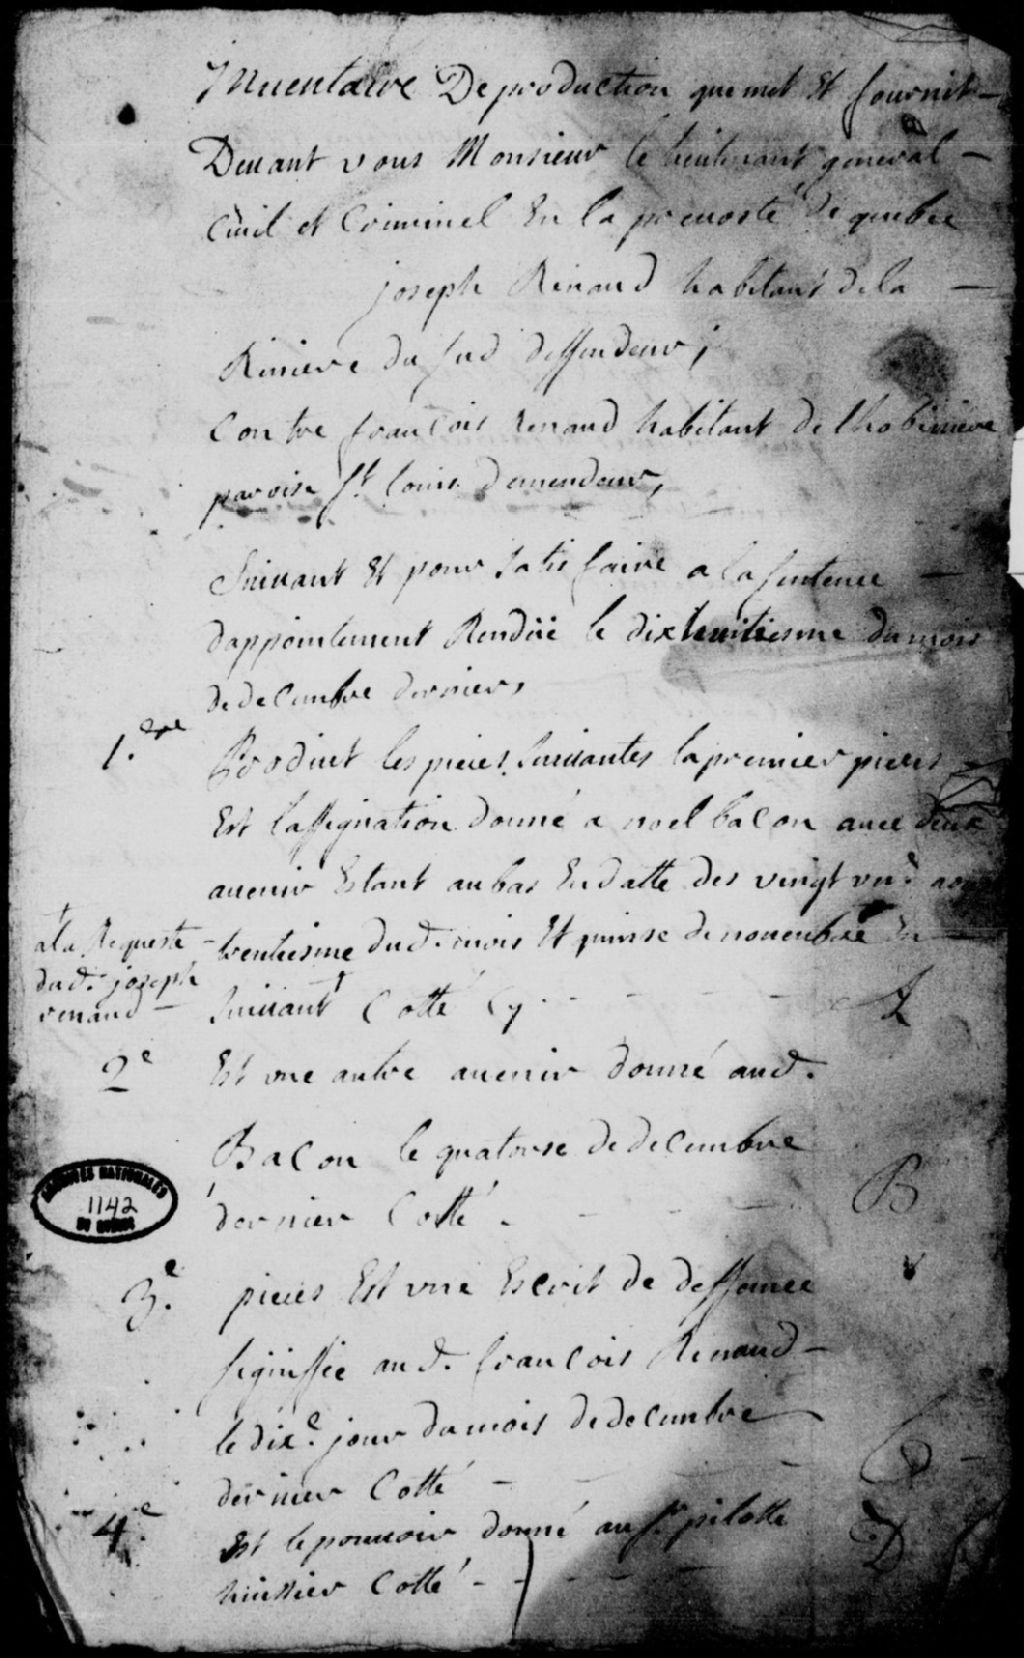 Inuentaire De production que met Et fournit
Deuant vous Monsieur le lieutenant general
Ciuil et Criminel En la preuosté de quebec
joseph Renaud habitant de la
Riuiere du sud deffendeur ;
Contre francois Renaud habitant de lhobiniere
paroise st louis demendeur,
Suiuant Et pour satisfaire a la sentence
dappointement Rendüe le dixhuitiesme du mois
de decembre dernier,
1.ere Produit les pieces suiuantes la premier pieces
Est lassignation donné a noel bacon auec deux
auenir Estant au bas En datte des vingt vn.e
a la Requeste
du d. joseph
renaud
trentiesme dud. mois Et quinse de nouembre En
suiuant Cotté Cy - - - A
2e Est vne autre auenir donné aud.
Bacon le quatorse de decembre
dernier Cotté - - - B
3e. pieces Est vne Escrit de deffance
signiffie aud. francois Renaud
le dix.e jour du mois de decembre
dernier Cotté - - - C
4.e Est le pouuoir donné au sr. pilotte
huissier Cotté - - - D
ARCHIVES NATIONALES
1142
DU QUÉBEC